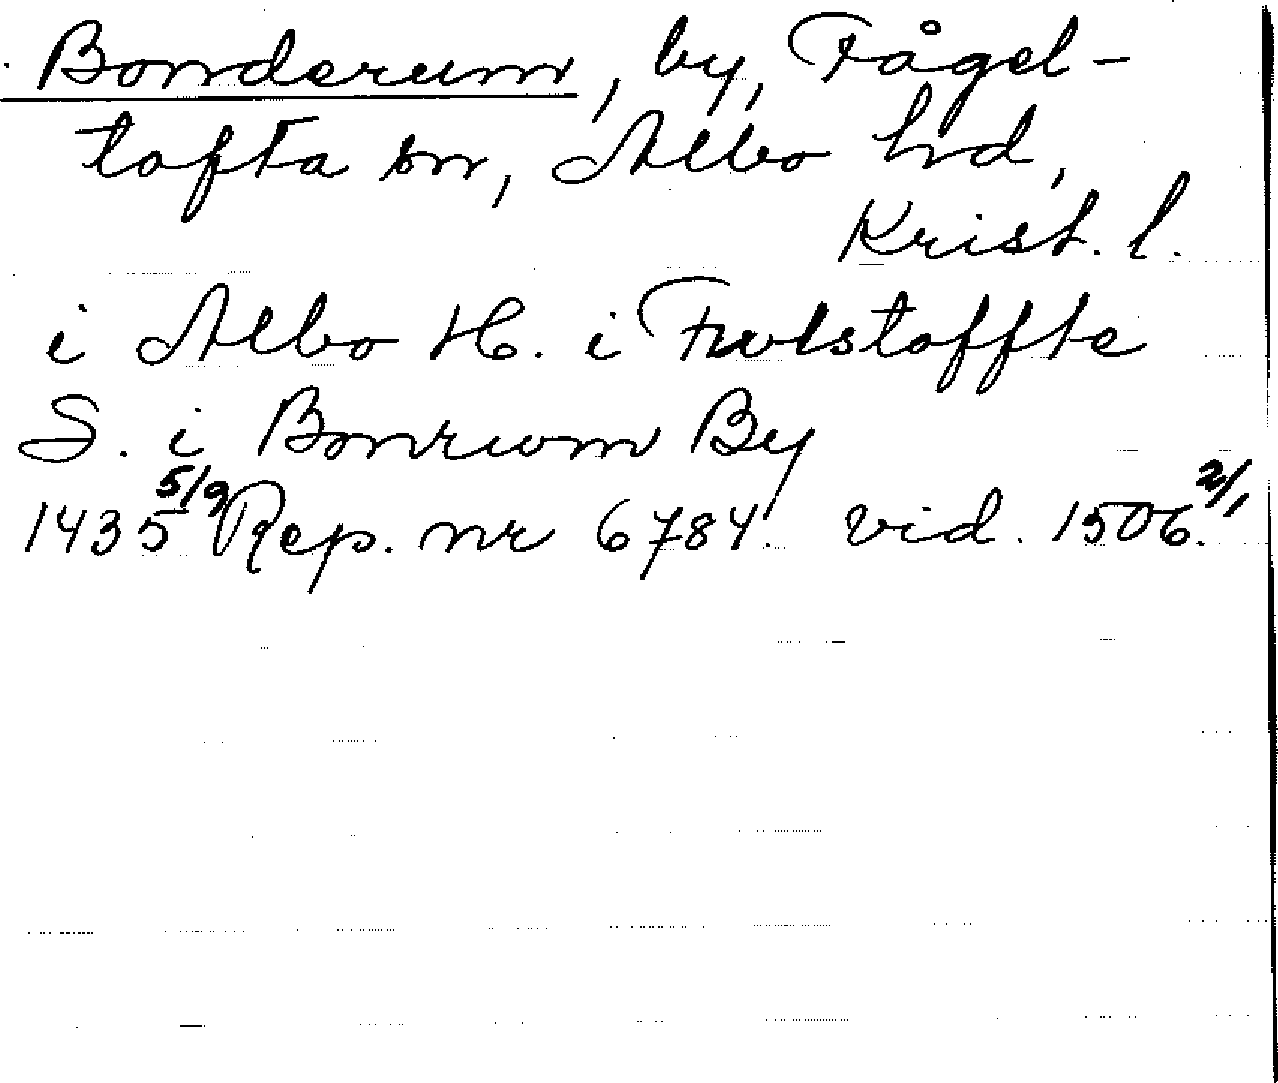 Bonderum, by, Fågel-
tofta sn, Albo hrd,
Krist. l.
i Albo H. i Fwlstoffte
S. i Bonrwm By
1435 5/9 Rep. nr 6784. vid. 1506. 2/1